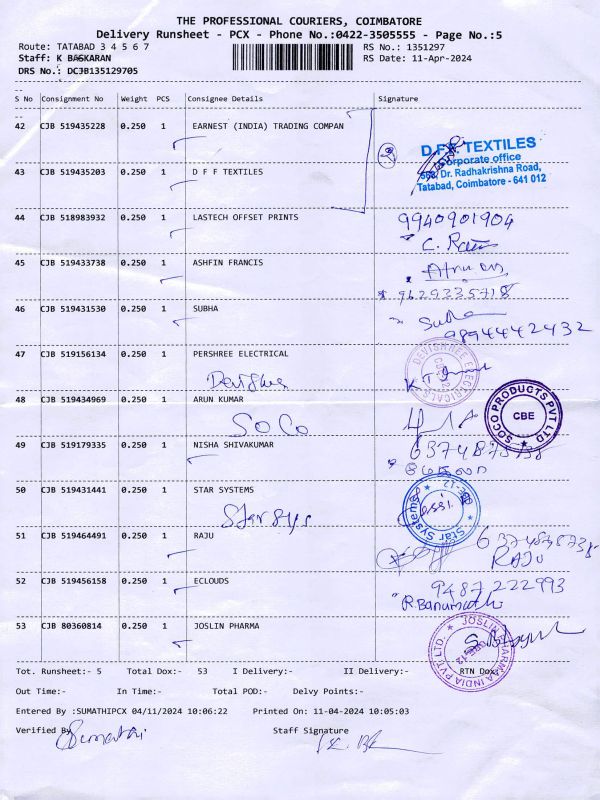 THE PROFESSIONAL COURIERS, COIMBATORE
Delivery Runsheet - PCX - Phone No.:0422-3505555 - Page No.:5
Route: TATABAD 3 4 5 6 7
RS No.: 1351297
Staff: K BASKARAN
RS Date: 11-Apr-2024
DRS No.: DCJB135129705
S No Consignment No Weight PCS Consignee Details Signature
42 CJB 519435228 0.250 1 EARNEST (INDIA) TRADING COMPAN
D.F.F. TEXTILES
Corporate office
Dr. Radhakrishna Road,
Tatabad, Coimbatore - 641 012
43 CJB 519435203 0.250 1 D F F TEXTILES
44 CJB 518983932 0.250 1 LASTECH OFFSET PRINTS 9940901904
45 CJB 519433738 0.250 1 ASHFIN FRANCIS
9629335718
46 CJB 519431530 0.250 1 SUBHA Subha
9894442432
47 CJB 519156134 0.250 1 PERSHREE ELECTRICAL
DEVISHREE ELECTRICALS
48 CJB 519434969 0.250 1 ARUN KUMAR
SOCO PRODUCTS PVT LTD
CBE
SoCo
49 CJB 519179335 0.250 1 NISHA SHIVAKUMAR
50 CJB 519431441 0.250 1 STAR SYSTEMS
Star Systems
CBE-12
Star Sys
51 CJB 519464491 0.250 1 RAJU
RAJU
52 CJB 519456158 0.250 1 ECLOUDS 9487222993
R.Banumathi
53 CJB 80360814 0.250 1 JOSLIN PHARMA
JOSLIN PHARMAA INDIA PVT LTD.
Tot. Runsheet:- 5 Total Dox:- 53 I Delivery:- II Delivery:- RTN Dox:-
Out Time:- In Time:- Total POD:- Delvy Points:-
Entered By :SUMATHIPCX 04/11/2024 10:06:22 Printed On: 11-04-2024 10:05:03
Verified By Sumathi Staff Signature